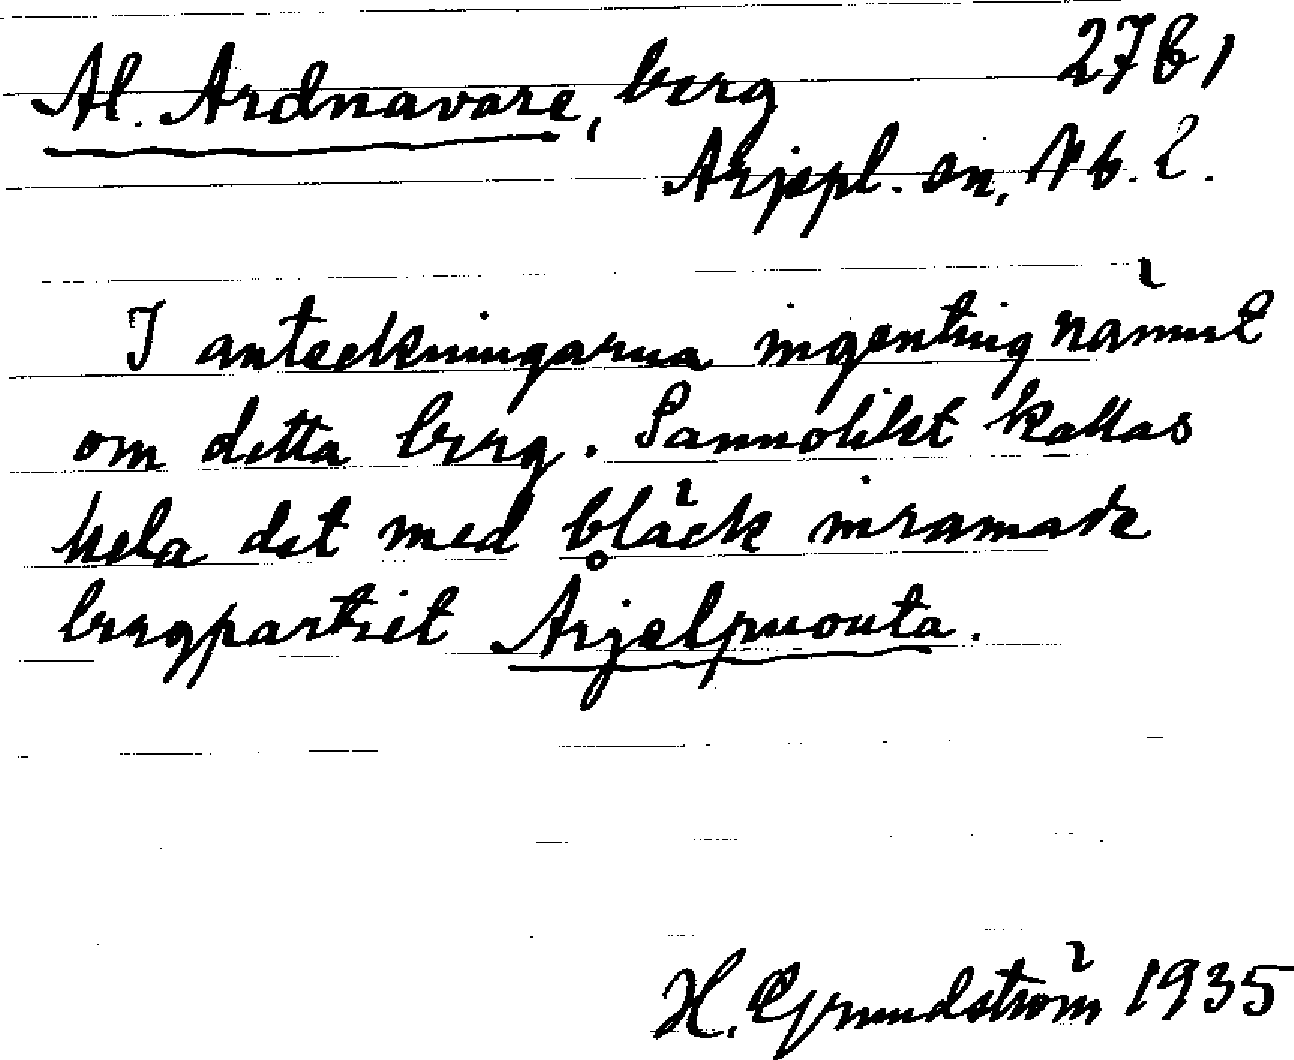 Al. Ardnavare, berg 27 b 1
Arjepl. sn, Nb. l.
I anteckningarna ingenting nämnt
om detta berg. Sannolikt kallas
hela det med bläck inramade
bergpartiet Årjelpuouta.
H. Grundström 1935